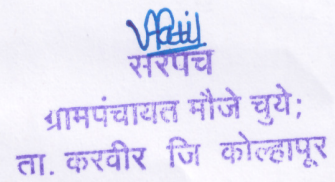 सरपंच
ग्रामपंचायत मौजे चुये;
ता. करवीर जि कोल्हापूर